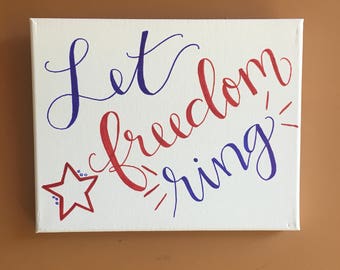 Let
freedom
ring